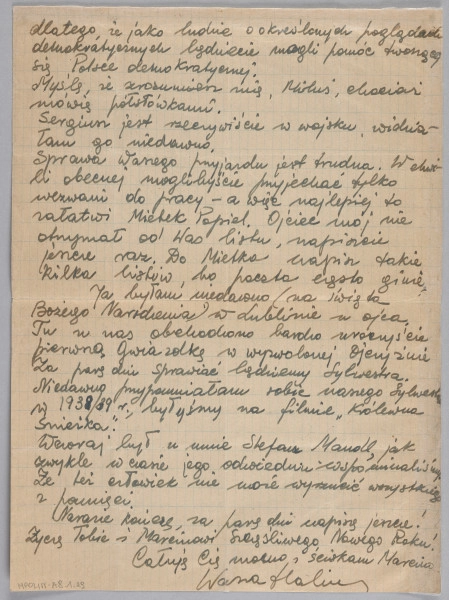 dlatego, że jako ludzie o określonych poglądach
demokratycznych będziecie mogli pomóc tworzącej
się Polsce demokratycznej.
Myślę, że zrozumiesz mię, Miluś, chociaż
mówię półsłówkami.
Sergiusz jest rzeczywiście w wojsku, widzia-
łam go niedawno.
Sprawa Waszego przyjazdu jest trudna. W chwi-
li obecnej moglibyście przyjechać tylko
wezwani do pracy – a więc najlepiej to
załatwi Mietek Popiel. Ojciec mój nie
otrzymał od Was listu, napiszcie
jeszcze raz. Do Mietka napisz także
kilka listów, bo poczta często ginie.
Ja byłam niedawno (na święta
Bożego Narodzenia) w Lublinie u ojca.
Tu u nas obchodzono bardzo uroczyście
pierwszą Gwiazdkę w wyzwolonej Ojczyźnie
Za parę dni sprawiać będziemy Sylwestra.
Niedawno przypominałam sobie naszego Sylwestra
w 1938/39 r., byłyśmy na filmie „Królewna
Śnieżka".
Wczoraj był u mnie Stefan Mandl, jak
zwykle w czasie jego odwiedzin wspominaliśmy
Że też człowiek nie może wyrzucić wszystkiego
z pamięci
Narazie kończę, za parę dni napiszę jeszcze!
Życzę Tobie i Marcinowi Szczęśliwego Nowego Roku!
Całuję Cię mocno i ściskam Marcina
Wasza Halina